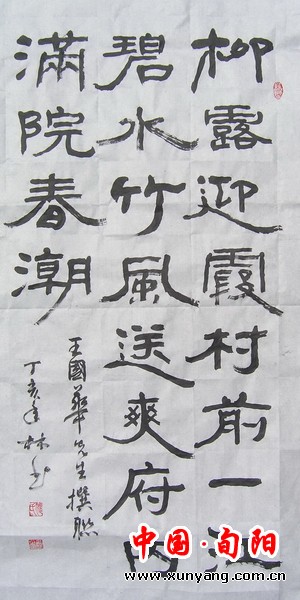 柳露迎霞村前一江
碧水竹風送爽府内
滿院春潮
王國華先生撰聯
丁亥年林书
中国·旬阳
www.xunyang.cn.com